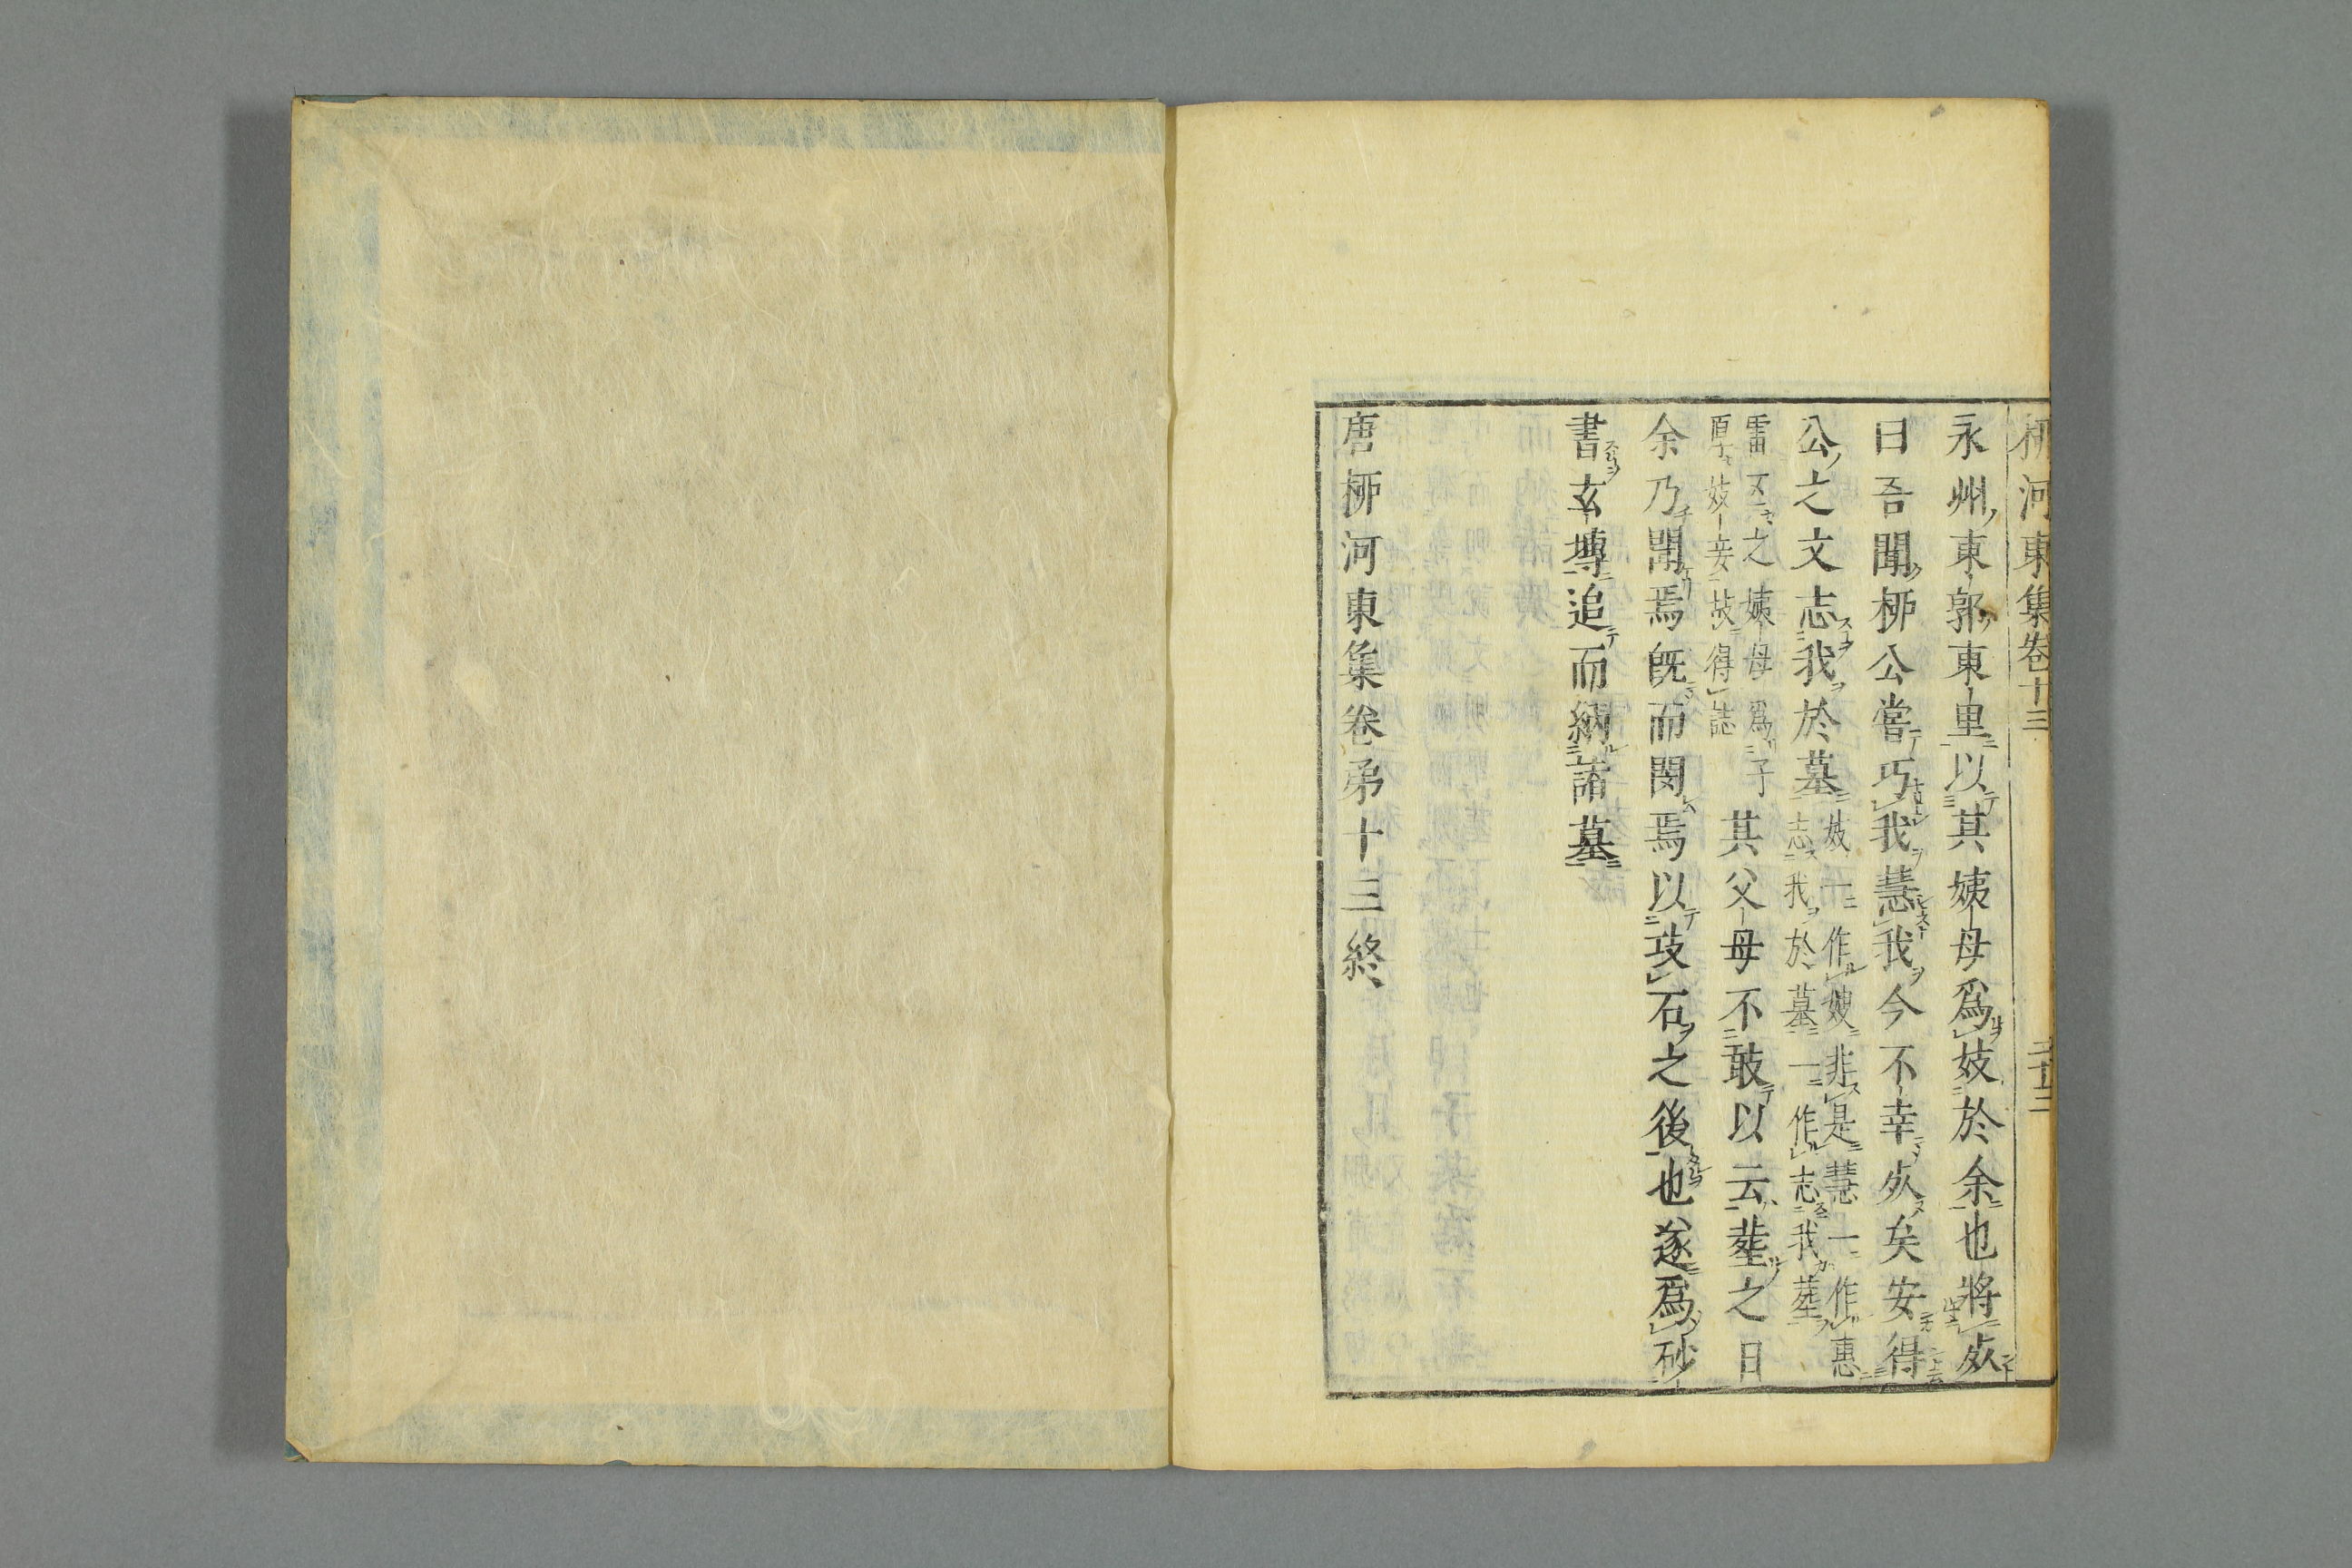 柳河東集卷十三 二十三
永州東郭東里以其姨母爲妓於余也將死
曰吾聞柳公嘗巧我慧我今不幸死矣安得
公之文志我於墓妓一作嫂非是慧一作惠
志我於墓一作志我葬
雷五之姨母爲子
厚妓妾故得誌其父母不敢以云葬之日
余乃聞焉旣而閔焉以攱石之後也遂爲砂
書玄塼追而納諸墓
唐柳河東集卷弟十三終